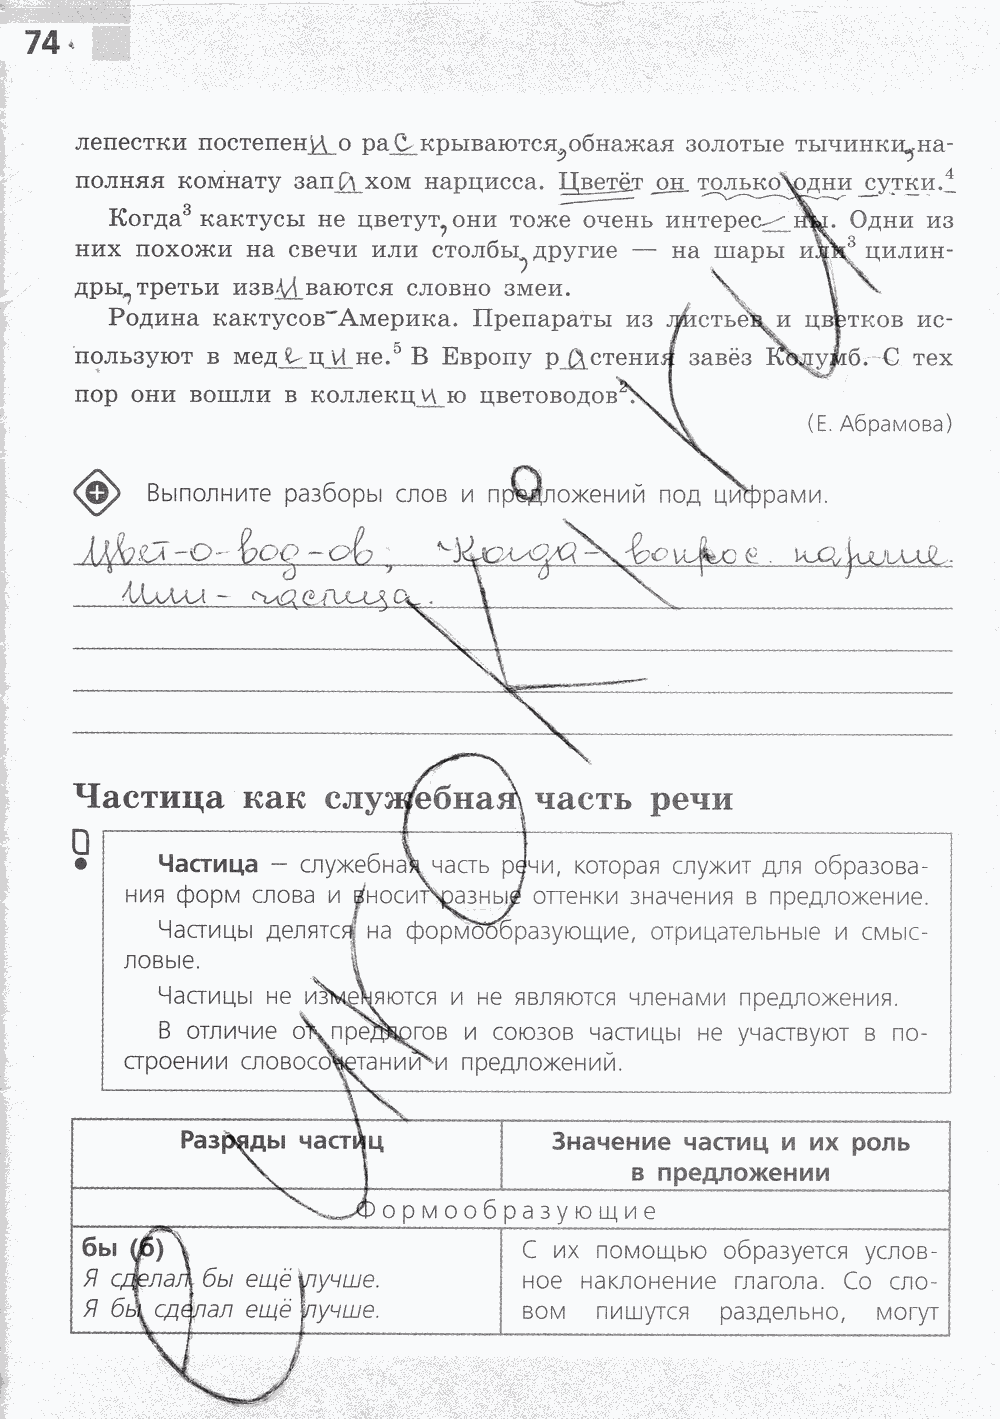 74
лепестки постепенно раскрываются, обнажая золотые тычинки, на-
полняя комнату запахом нарцисса. Цветёт он только одни сутки.⁴
Когда³ кактусы не цветут, они тоже очень интерес__ны. Одни из
них похожи на свечи или столбы, другие — на шары или³ цилин-
дры, третьи извиваются словно змеи.
Родина кактусов-Америка. Препараты из листьев и цветков ис-
пользуют в медецине.⁵ В Европу растения завёз Колумб. С тех
пор они вошли в коллекцию цветоводов².
(Е. Абрамова)
Выполните разборы слов и предложений под цифрами.
Цвет-о-вод-ов; Когда- вопрос. наречие.
Или - частица.
Частица как служебная часть речи
Частица — служебная часть речи, которая служит для образова-
ния форм слова и вносит разные оттенки значения в предложение.
Частицы делятся на формообразующие, отрицательные и смыс-
ловые.
Частицы не изменяются и не являются членами предложения.
В отличие от предлогов и союзов частицы не участвуют в по-
строении словосочетаний и предложений.
Разряды частиц
Значение частиц и их роль
в предложении
Формообразующие
бы (б)
Я сделал бы ещё лучше.
Я бы сделал ещё лучше.
С их помощью образуется услов-
ное наклонение глагола. Со сло-
вом пишутся раздельно, могут